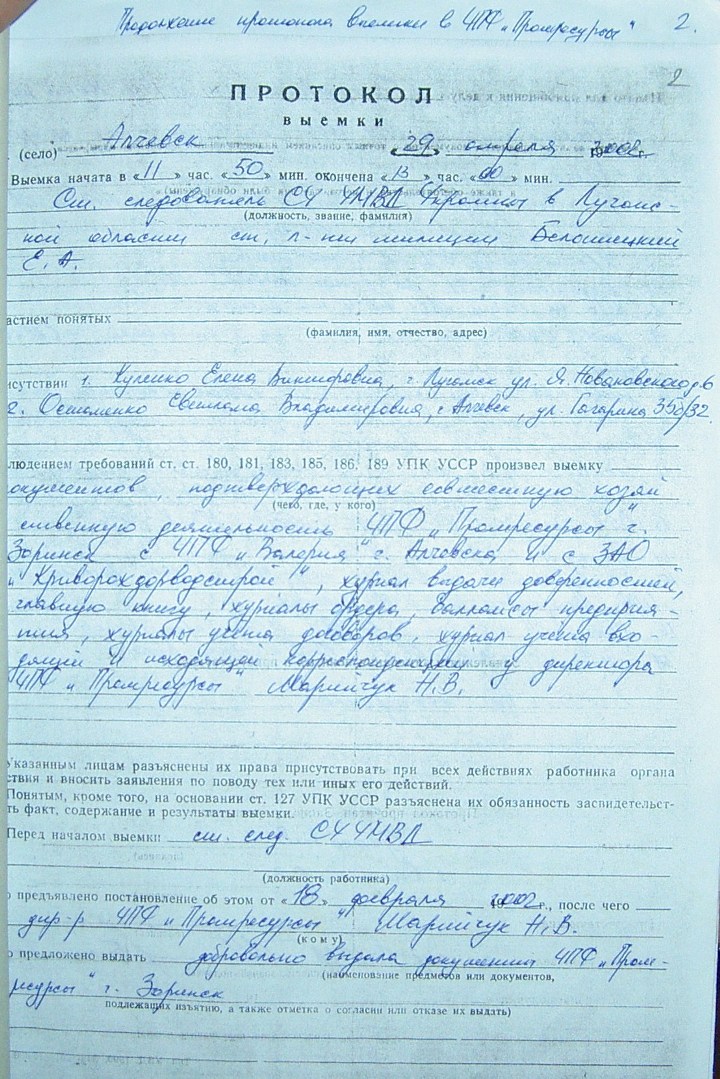 Продолжение протокола выемки в ЧПФ „Промресурсы" 2.
2
ПРОТОКОЛ
выемки
(село) Алчевск «29» апреля 2002 г.
Выемка начата в «11» час. «50» мин. окончена «13» час. «00» мин.
Ст. следователь СУ УМВД Украины в Луганс-
(должность, звание, фамилия)
кой области ст. л-нт милиции
Е. А.
астием понятых
(фамилия, имя, отчество, адрес)
исутствии 1. Елена , г. Луганск ул. д. 6
2. Светлана Владимировна, г. Алчевск, ул. Гагарина
людением требований ст. ст. 180, 181, 183, 185, 186, 189 УПК УССР произвел выемку
окументов, подтверждающих совместную хозяй
(чего, где, у кого)
ственную деятельность ЧПФ „Промресурсы" г.
Зоринск с ЧПФ „Валерия" г. Алчевска и с ЗАО
, журнал выдачи доверенностей,
главную книгу, журналы ордера, балансы предприя-
тия, журналы учета договоров, журнал учета вхо-
дящей и исходящей корреспонденции у директора
ЧПФ „Промресурсы" Марийчук Н.В.
Указанным лицам разъяснены их права присутствовать при всех действиях работника органа
ствия и вносить заявления по поводу тех или иных его действий.
Понятым, кроме того, на основании ст. 127 УПК УССР разъяснена их обязанность засвидетельст-
ть факт, содержание и результаты выемки.
Перед началом выемки ст. след. СУ УМВД
(должность работника)
о предъявлено постановление об этом от «18» февраля 2002 г., после чего
дир-р ЧПФ „Промресурсы" Марийчук Н.В.
(кому)
о предложено выдать добровольно выдала документы ЧПФ „Пром-
(наименование предметов или документов,
ресурсы" г. Зоринск
подлежащих изъятию, а также отметка о согласии или отказе их выдать)